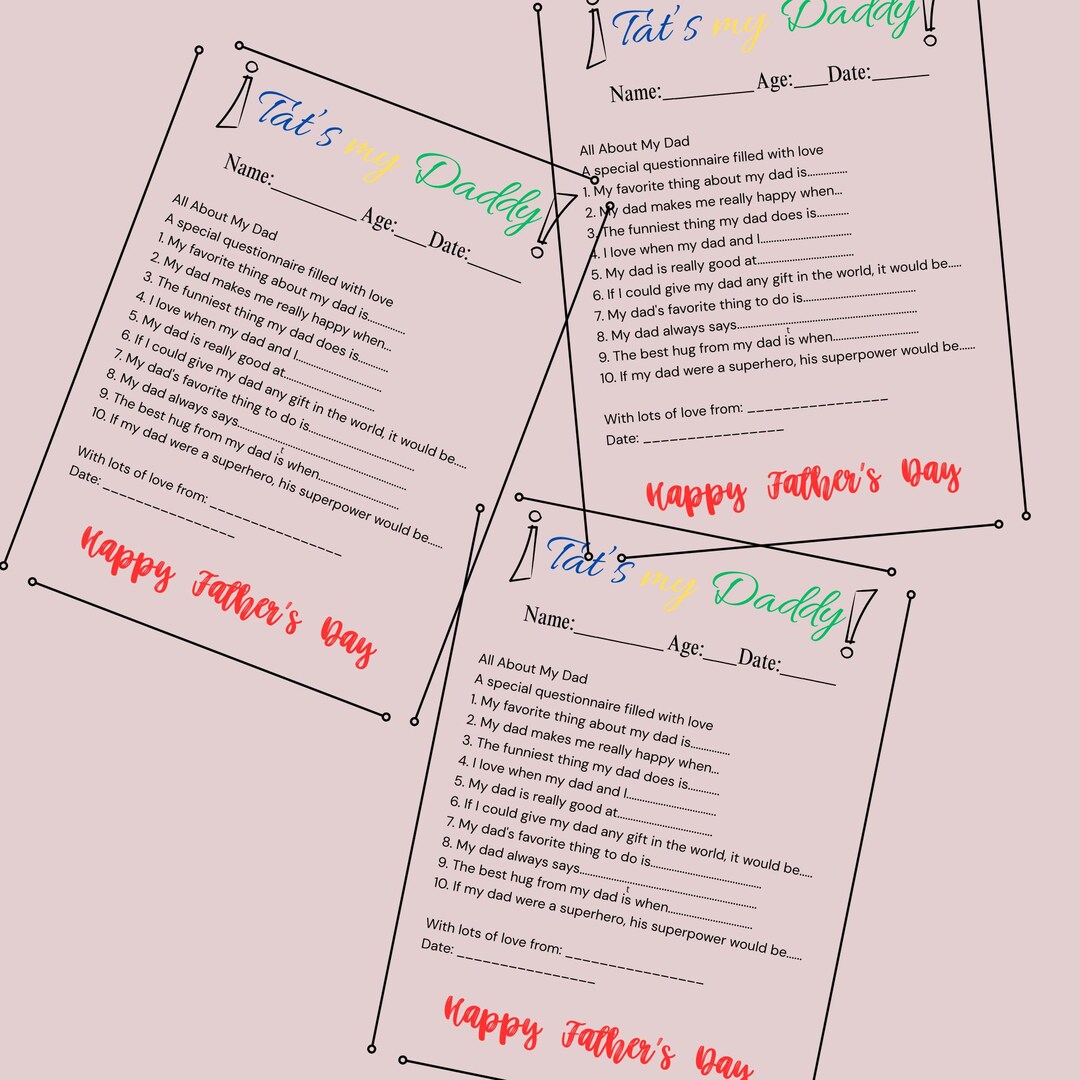 ¡Tat's my Daddy!
Name:_________ Age:___Date:_____
All About My Dad
A special questionnaire filled with love
1. My favorite thing about my dad is............
2. My dad makes me really happy when...
3. The funniest thing my dad does is..........
4. I love when my dad and I.............................
5. My dad is really good at..............................
6. If I could give my dad any gift in the world, it would be.....
7. My dad's favorite thing to do is...................................
8. My dad always says.........................................................
t
9. The best hug from my dad is when...........................
10. If my dad were a superhero, his superpower would be......
With lots of love from: ________________
Date: ________________
Happy Father's Day
¡Tat's my Daddy!
Name:_________ Age:___Date:_____
All About My Dad
A special questionnaire filled with love
1. My favorite thing about my dad is.............
2. My dad makes me really happy when...
3. The funniest thing my dad does is..........
4. I love when my dad and I.............................
5. My dad is really good at..............................
6. If I could give my dad any gift in the world, it would be.....
7. My dad's favorite thing to do is...................................
8. My dad always says.........................................................
t
9. The best hug from my dad is when...........................
10. If my dad were a superhero, his superpower would be......
With lots of love from: ________________
Date: ________________
Happy Father's Day
¡Tat's my Daddy!
Name:_________ Age:___Date:_____
All About My Dad
A special questionnaire filled with love
1. My favorite thing about my dad is.............
2. My dad makes me really happy when...
3. The funniest thing my dad does is..........
4. I love when my dad and I.............................
5. My dad is really good at..............................
6. If I could give my dad any gift in the world, it would be.....
7. My dad's favorite thing to do is...................................
8. My dad always says.........................................................
t
9. The best hug from my dad is when...........................
10. If my dad were a superhero, his superpower would be......
With lots of love from: ________________
Date: ________________
Happy Father's Day